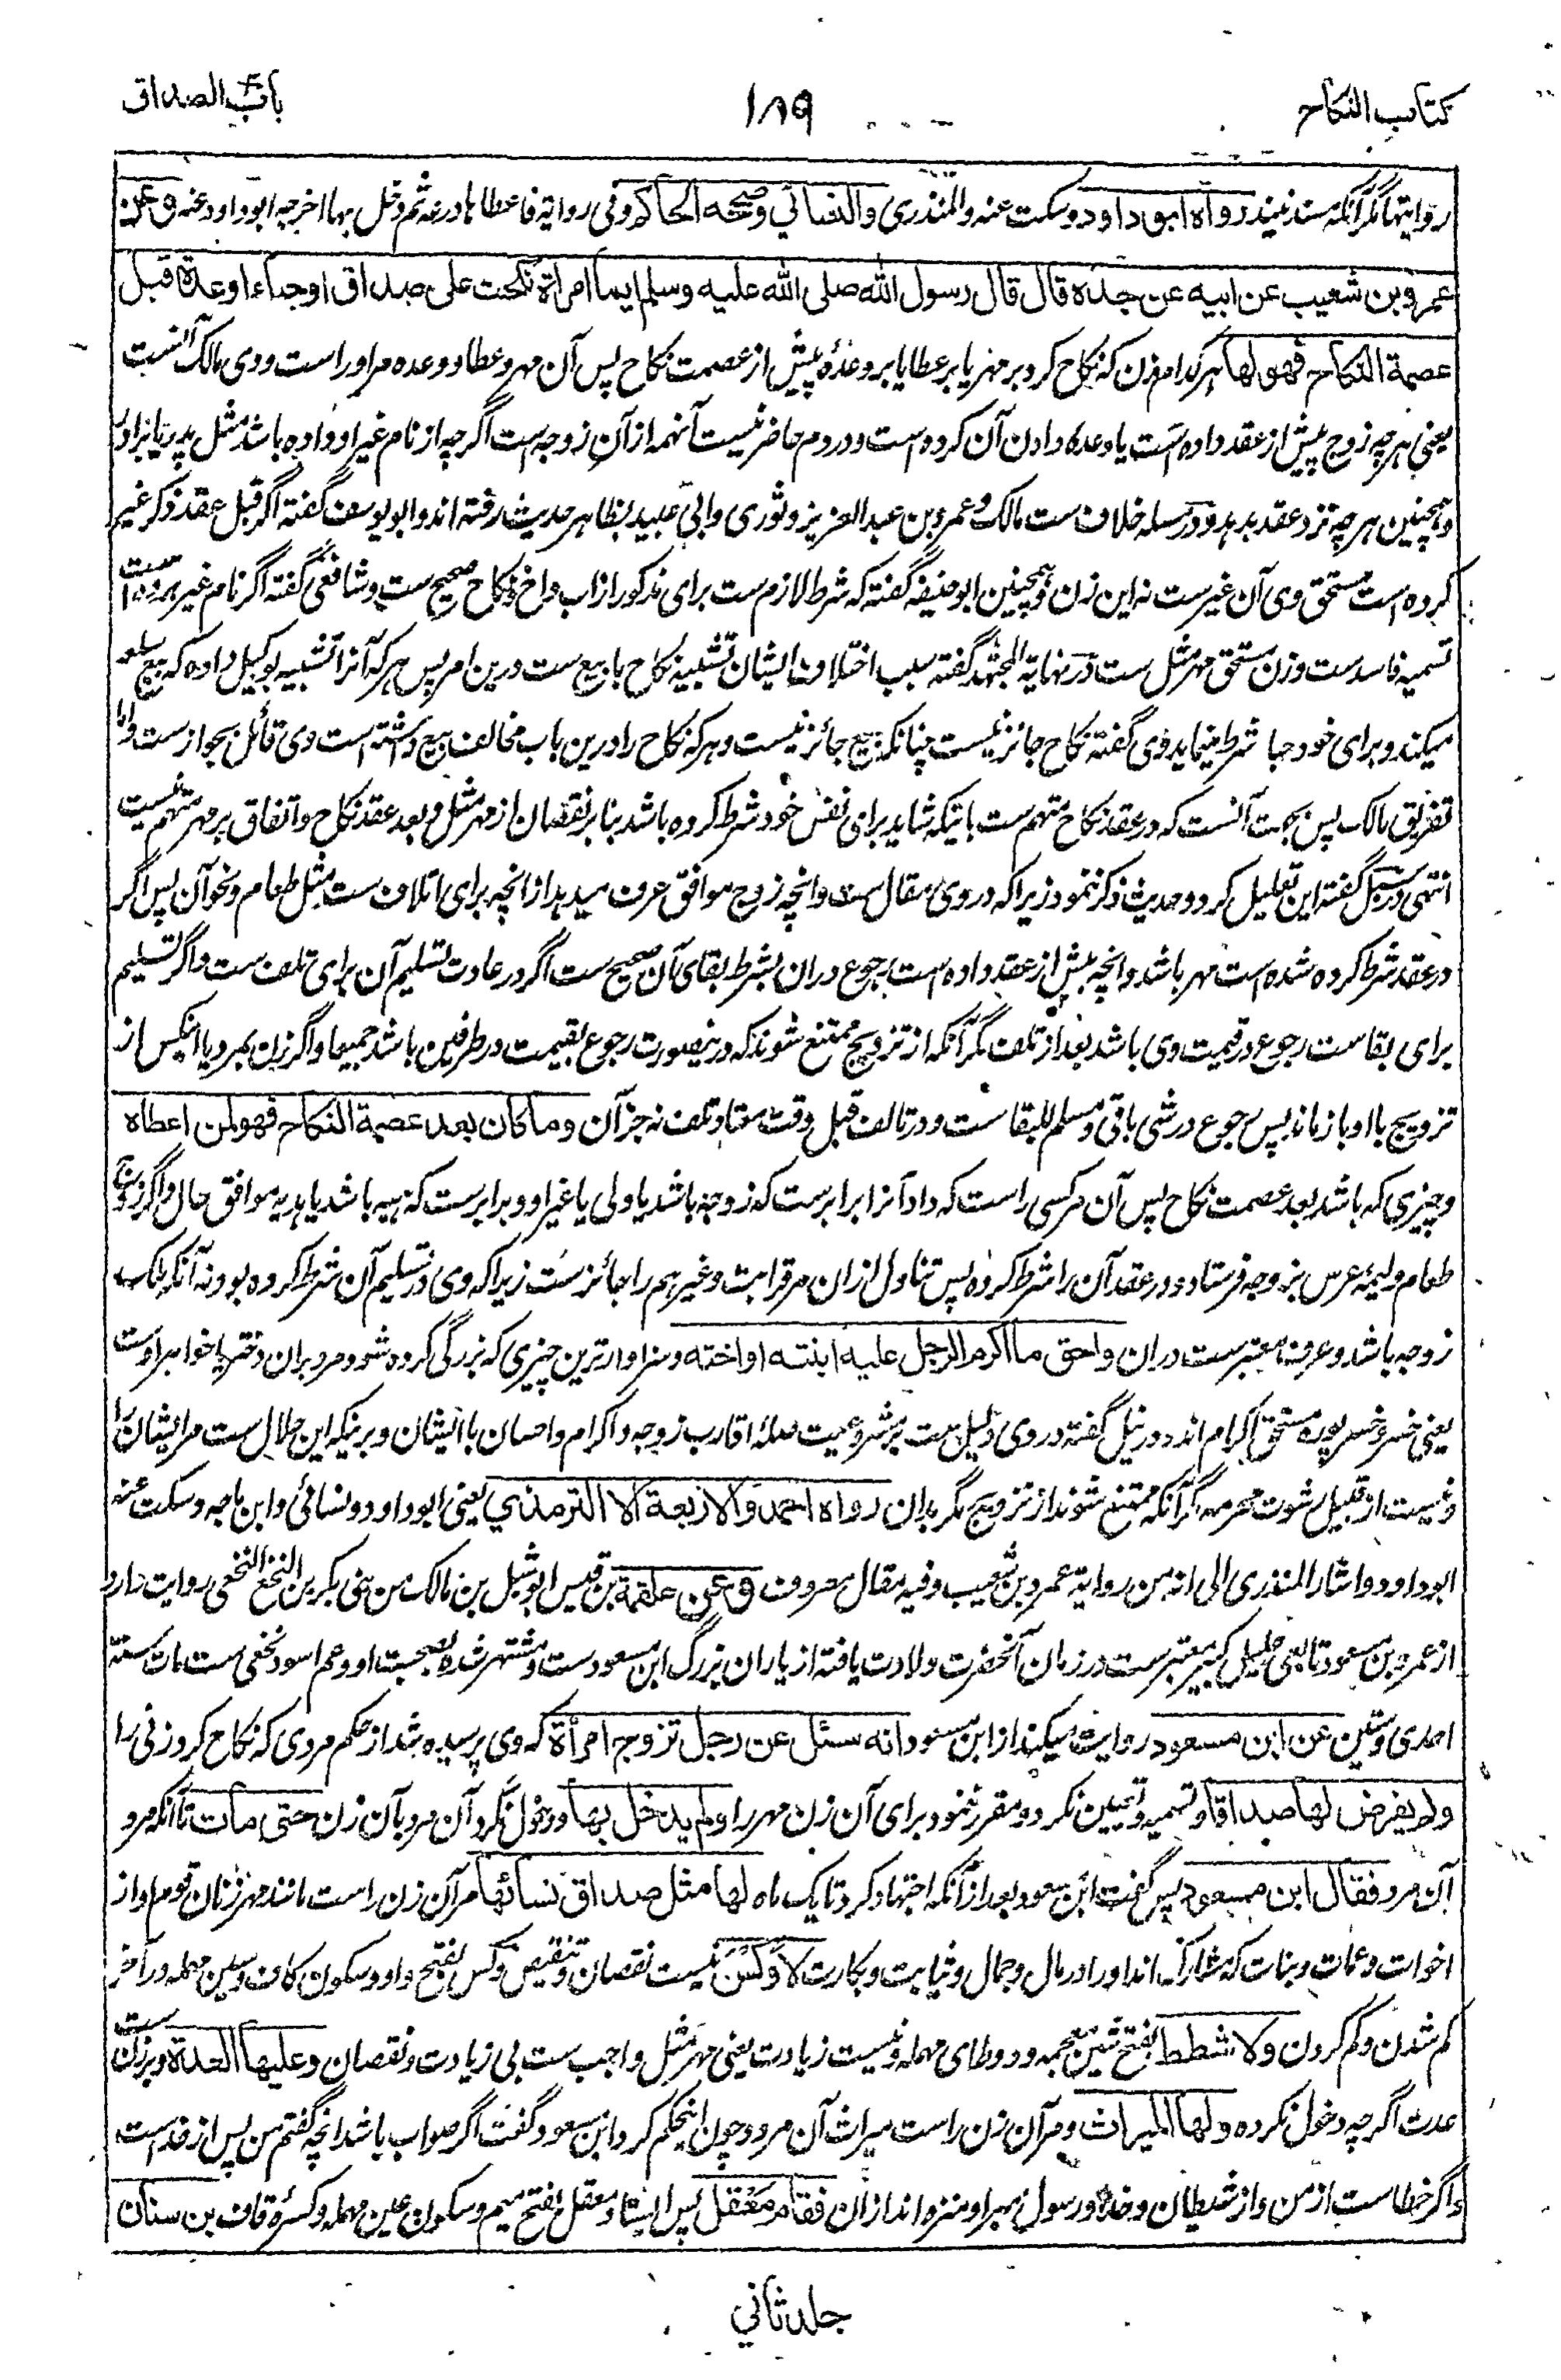 کتاب النکاح
۱۸۹
باب الصداق
روایتها مگر آنکه سند نبیند رواه ابو داود وسکت عنه والمنذری والنسائي وصححه الحاکم وفی روایة فاعطاها درعه ثم دخل بها اخرجه ابو داود عنه وعن
عمرو بن شعیب عن ابیه عن جده قال قال رسول الله صلی الله علیه وسلم ایما امراة نکحت علی صداق او حباء او عدة قبل
عصمة النکاح فهو لها هر کدام زن که نکاح کرد بر مهر یا بر عطا یا بر وعده پیش از عصمت نکاح پس آن مهر وعطا ووعده مر او راست ووی مالک آنست
یعنی هر چه زوج پیش از عقد داده است یا وعده دادن آن کرده است ودر دم حاضر نیست آنهمه از آن زوجه است اگر چه از نام غیر او داده باشد مثل پدر یا برادر
وهمچنین هر چه نزد عقد بدهد ودر مسئله خلاف ست مالک وعمرو بن عبد العزیز وثوری وابی عبید بظاهر حدیث رفته اند وابو یوسف گفته اگر قبل عقد ذکر غیر
کرده است مستحق وی آن غیر ست نه این زن وهمچنین ابو حنیفه گفته که شرط لازم ست برای مذکور از اب واخ ونکاح صحیح ست وشافعی گفته اگر نام غیر برده است
تسمیه فاسد ست وزن مستحق مهر مثل ست در نهایة المجتهد گفته سبب اختلاف ایشان تشبیه نکاح با بیع ست درین امر پس هر که آنرا تشبیه بوکیل داده که بیع سلعه
میکند وبرای خود حبا شرط مینماید وی گفته نکاح جائز نیست چنانکه بیع جائز نیست وهر که نکاح را درین باب مخالف بیع داشته است وی قائل بجواز ست واما
تفریق مالک پس بجهت آنست که در عقد نکاح متهم ست باینکه شاید برای نفس خود شرط کرده باشد بنا بر نقصان از مهر مثل وبعد عقد نکاح واتفاق بر مهر متهم نیست
انتهی در سبل گفته این تعلیل کرد وحدیث ذکر ننمود زیرا که در وی مقال ست وانچه زوج موافق عرف میدهد از انچه برای اتلاف ست مثل طعام ونحو آن پس اگر
در عقد شرط کرده شده است مهر باشد وانچه پیش از عقد داده است رجوع دران بشرط بقای آن صحیح ست اگر در عادت تسلیم آن برای تلف ست واگر تسلیم
برای بقاست رجوع در قیمت وی باشد بعد از تلف مگر آنکه از تزویج ممتنع شوند که درینصورت رجوع بقیمت در طرفین باشد جمیعا واگر زن بمرد یا اینکس از
تزویج با او باز ماند پس رجوع در شی باقی ومسلم للبقا ست ودر تالف قبل وقت معتاد تلف نه جز آن وما کان بعد عصمة النکاح فهو لمن اعطاه
وچیزی که باشد بعد عصمت نکاح پس آن مر کسی راست که داد آنرا برابرست که زوجه باشد یا ولی یا غیر او وبرابرست که هبه باشد یا هدیه موافق حال واگر زوج
طعام ولیمهٔ عرس بزوجه فرستاد ودر عقد آن را شرط کرده پس تناول ازان مر قرابت وغیرهم را جائز ست زیرا که وی در تسلیم آن شرط کرده بود نه آنکه ملک
زوجه باشد وعرف معتبر ست دران واحق ما اکرم الرجل علیه ابنته او اخته وسزاوار ترین چیزی که بزرگی کرده شود مرد بران دختر یا خواهر اوست
یعنی خسر وخسر پوره مستحق اکرام اند در نیل گفته در وی دلیل ست بر مشروعیت صلهٔ اقارب زوجه واکرام واحسان با ایشان وبر نیکه این حلال ست مر ایشان را
ونیست از قبیل رشوت محرمه مگر آنکه ممتنع شوند از تزویج مگر بدان رواه احمد والاربعة الا الترمذي یعنی ابو داود ونسائی وابن ماجه وسکت عنه
ابو داود واشار المنذری الی انه من روایة عمرو بن شعیب وفیه مقال معروف وعن علقمة بن قیس ابو شبل بن مالک من بنی بکر بن النخع النخعی روایت دارد
از عمر وبن مسعود تابعی جلیل کبیر معتبر ست در زمان آنحضرت ولادت یافته از یاران بزرگ ابن مسعود ست ومشتهر شده بصحبت او وعم اسود نخعی ست مات سنة
احدی وستین عن ابن مسعود روایت میکند از ابن مسعود انه سئل عن رجل تزوج امرأة که وی پرسیده شد از حکم مردی که نکاح کرد زنی را
ولم یفرض لها صداقا وتسمیه وتعیین نکرد ومقرر ننمود برای آن زن مهر را ولم یدخل بها ودخول نکرد آن مرد بآن زن حتی مات تا آنکه مرد
آن مرد فقال ابن مسعود پس گفت ابن مسعود بعد از آنکه اجتهاد کرد تا یک ماه لها مثل صداق نسائها مر آن زن راست مانند مهر زنان قوم او از
اخوات وعمات وبنات که مشارک اند او را در مال وجمال وثیابت وبکارت لا وکس نیست نقصان وتنقیص وکس بفتح واو وسکون کاف وسین مهمله در آخر
کم شدن وکم کردن ولا شطط بفتح شین معجمه ودو طای مهمله ونیست زیادت یعنی مهر مثل واجب ست بی زیادت ونقصان وعلیها العدة وبر زن ست
عدت اگر چه دخول نکرده ولها المیراث ومر آن زن راست میراث آن مرد وچون اینحکم کرد ابن مسعود گفت اگر صواب باشد انچه گفتم من پس از خداست
واگر خطاست از من واز شیطان وخدا ورسول مبرا ومنزه اند ازان فقام معقل پس ایستاد معقل بفتح میم وسکون عین مهمله وکسرهٔ قاف بن سنان
جلد ثاني